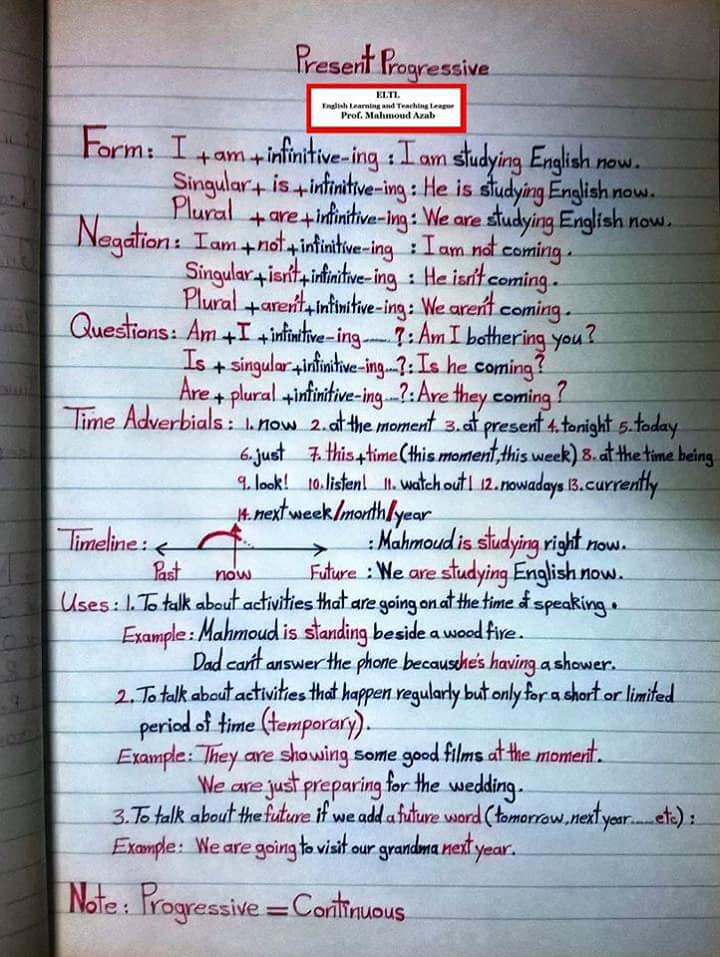 Present Progressive
ELTL
English Learning and Teaching League
Prof. Mahmoud Azab
Form: I + am + infinitive-ing : I am studying English now.
Singular + is + infinitive-ing : He is studying English now.
Plural + are + infinitive-ing : We are studying English now.
Negation: I am + not + infinitive-ing : I am not coming.
Singular + isn't + infinitive-ing : He isn't coming.
Plural + aren't + infinitive-ing : We aren't coming.
Questions: Am + I + infinitive-ing......? : Am I bothering you?
Is + singular + infinitive-ing...? : Is he coming?
Are + plural + infinitive-ing...? : Are they coming?
Time Adverbials: 1. now 2. at the moment 3. at present 4. tonight 5. today
6. just 7. this + time (this moment, this week) 8. at the time being
9. look! 10. listen! 11. watch out! 12. nowadays 13. currently
14. next week/month/year
Timeline: : Mahmoud is studying right now.
Past now Future : We are studying English now.
Uses: 1. To talk about activities that are going on at the time of speaking.
Example: Mahmoud is standing beside a wood fire.
Dad can't answer the phone because he's having a shower.
2. To talk about activities that happen regularly but only for a short or limited
period of time (temporary).
Example: They are showing some good films at the moment.
We are just preparing for the wedding.
3. To talk about the future if we add a future word (tomorrow, next year.....etc) :
Example: We are going to visit our grandma next year.
Note: Progressive = Continuous